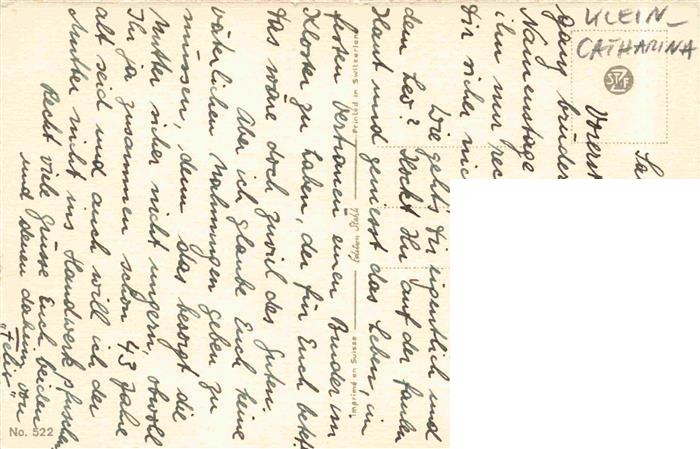 KLEIN-
CATHARINA
Vorerst
ganz brüder
Namenstage
ihm nur rec
dir sicher nic
Wie geht's dir eigentlich und
den Leo? Hockt Ihr auf der faulen
Haut und geniesst das Leben, im
festen Vertrauen einen Bruder im
Kloster zu haben, der für Euch betet.
Das wäre doch zuviel des Guten.
Aber ich glaube Euch keine
väterlichen Mahnungen geben zu
müssen, denn das besorgt die
Mutter sicher nicht ungern, obwohl
Ihr ja zusammen schon 43 Jahre
alt seid und auch will ich der
Mutter nicht ins Handwerk pfuschen
Recht viele Grüsse Euch beiden
und denen daheim von
"Felix"
Printed in Switzerland
Imprimé en Suisse
No. 522